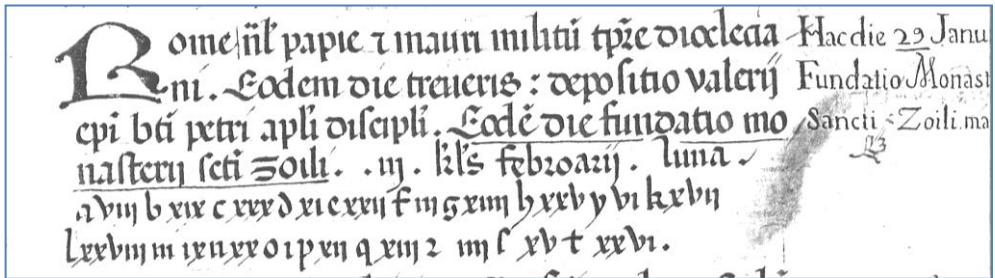 Rome nr̄l papie ⁊ mauri militū tp̄re dioclecia
ni. Eodem die treueris: depositio valerij
ep̄i bt̄i petri apl̄i discipl̄i. Eodē die fundatio mo
nasterij sc̄ti zoili. .iij. kl̄s febroarij. luna
a viij b xix c xxx d xi e xxij f iij g xiiij h xxv y vi k xvij
l xxviij m ix n xx o i p xij q xxiij
Hac die 29 Janu
Fundatio Monast
Sancti Zoili